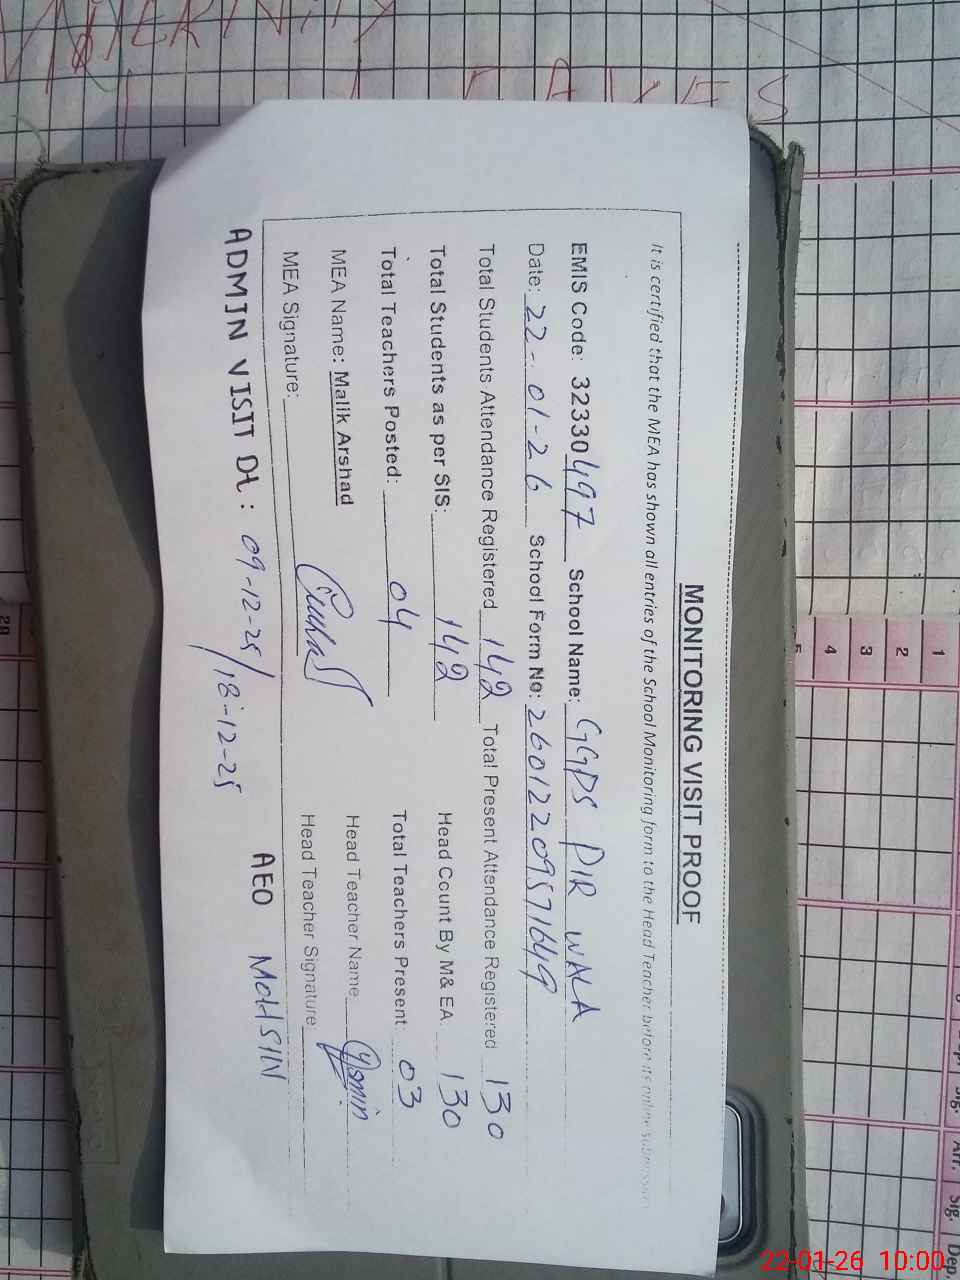 MATERNITY
LEAVES
MONITORING VISIT PROOF
It is certified that the MEA has shown all entries of the School Monitoring form to the Head Teacher before its online submission
EMIS Code: 32330497 School Name: GGPS PIR WALA
Date: 22-01-26 School Form No: 26012209571649
Total Students Attendance Registered 142 Total Present Attendance Registered 130
Total Students as per SIS: 142 Head Count By M& EA 130
Total Teachers Posted: 04 Total Teachers Present 03
MEA Name: Malik Arshad Head Teacher Name
MEA Signature: Head Teacher Signature:
ADMIN VISIT Dt: 09-12-25/18-12-25 AEO MOHSIN
1
2
3
4
5
29
Sig.
Arr.
Sig.
Dep.
22-01-26 10:00